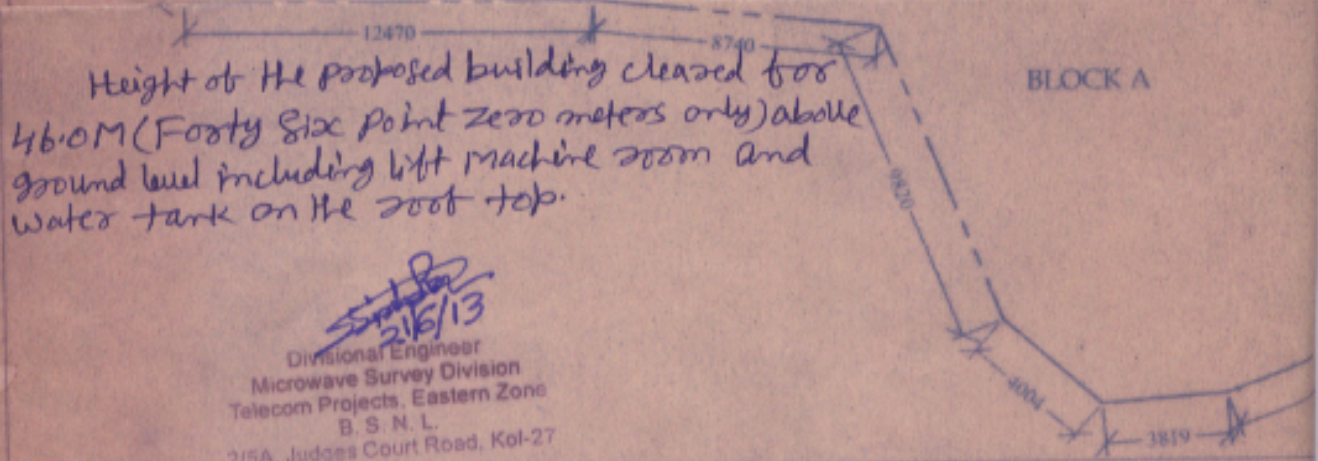 12470
8740
BLOCK A
Height of the proposed building cleared for
46.0M (Forty Six Point Zero meters only) above
ground level including lift machine room and
water tank on the roof top.
9820
21/6/13
Divisional Engineer
Microwave Survey Division
Telecom Projects, Eastern Zone
B. S. N. L.
2/5A, Judges Court Road, Kol-27
4004
3819